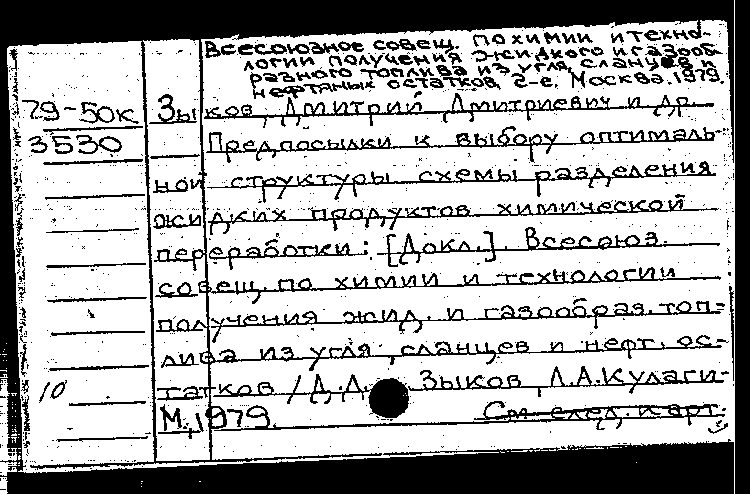 Всесоюзное совещ. по химии и техно-
логии получения жидкого и газооб-
разного топлива из угля, сланцев и
нефтяных остатков, 2-е, Москва. 1979.
79-50к Зыков, Дмитрий Дмитриевич и др.
3530 Предпосылки к выбору оптималь-
ной структуры схемы разделения
жидких продуктов химической
переработки: [Докл.]. Всесоюз.
совещ. по химии и технологии
получения жид. и газообраз. топ-
лива из угля, сланцев и нефт. ос-
10 татков / Д.Д. Зыков, Л.А. Кулаги-
М., 1979. См след. карт.